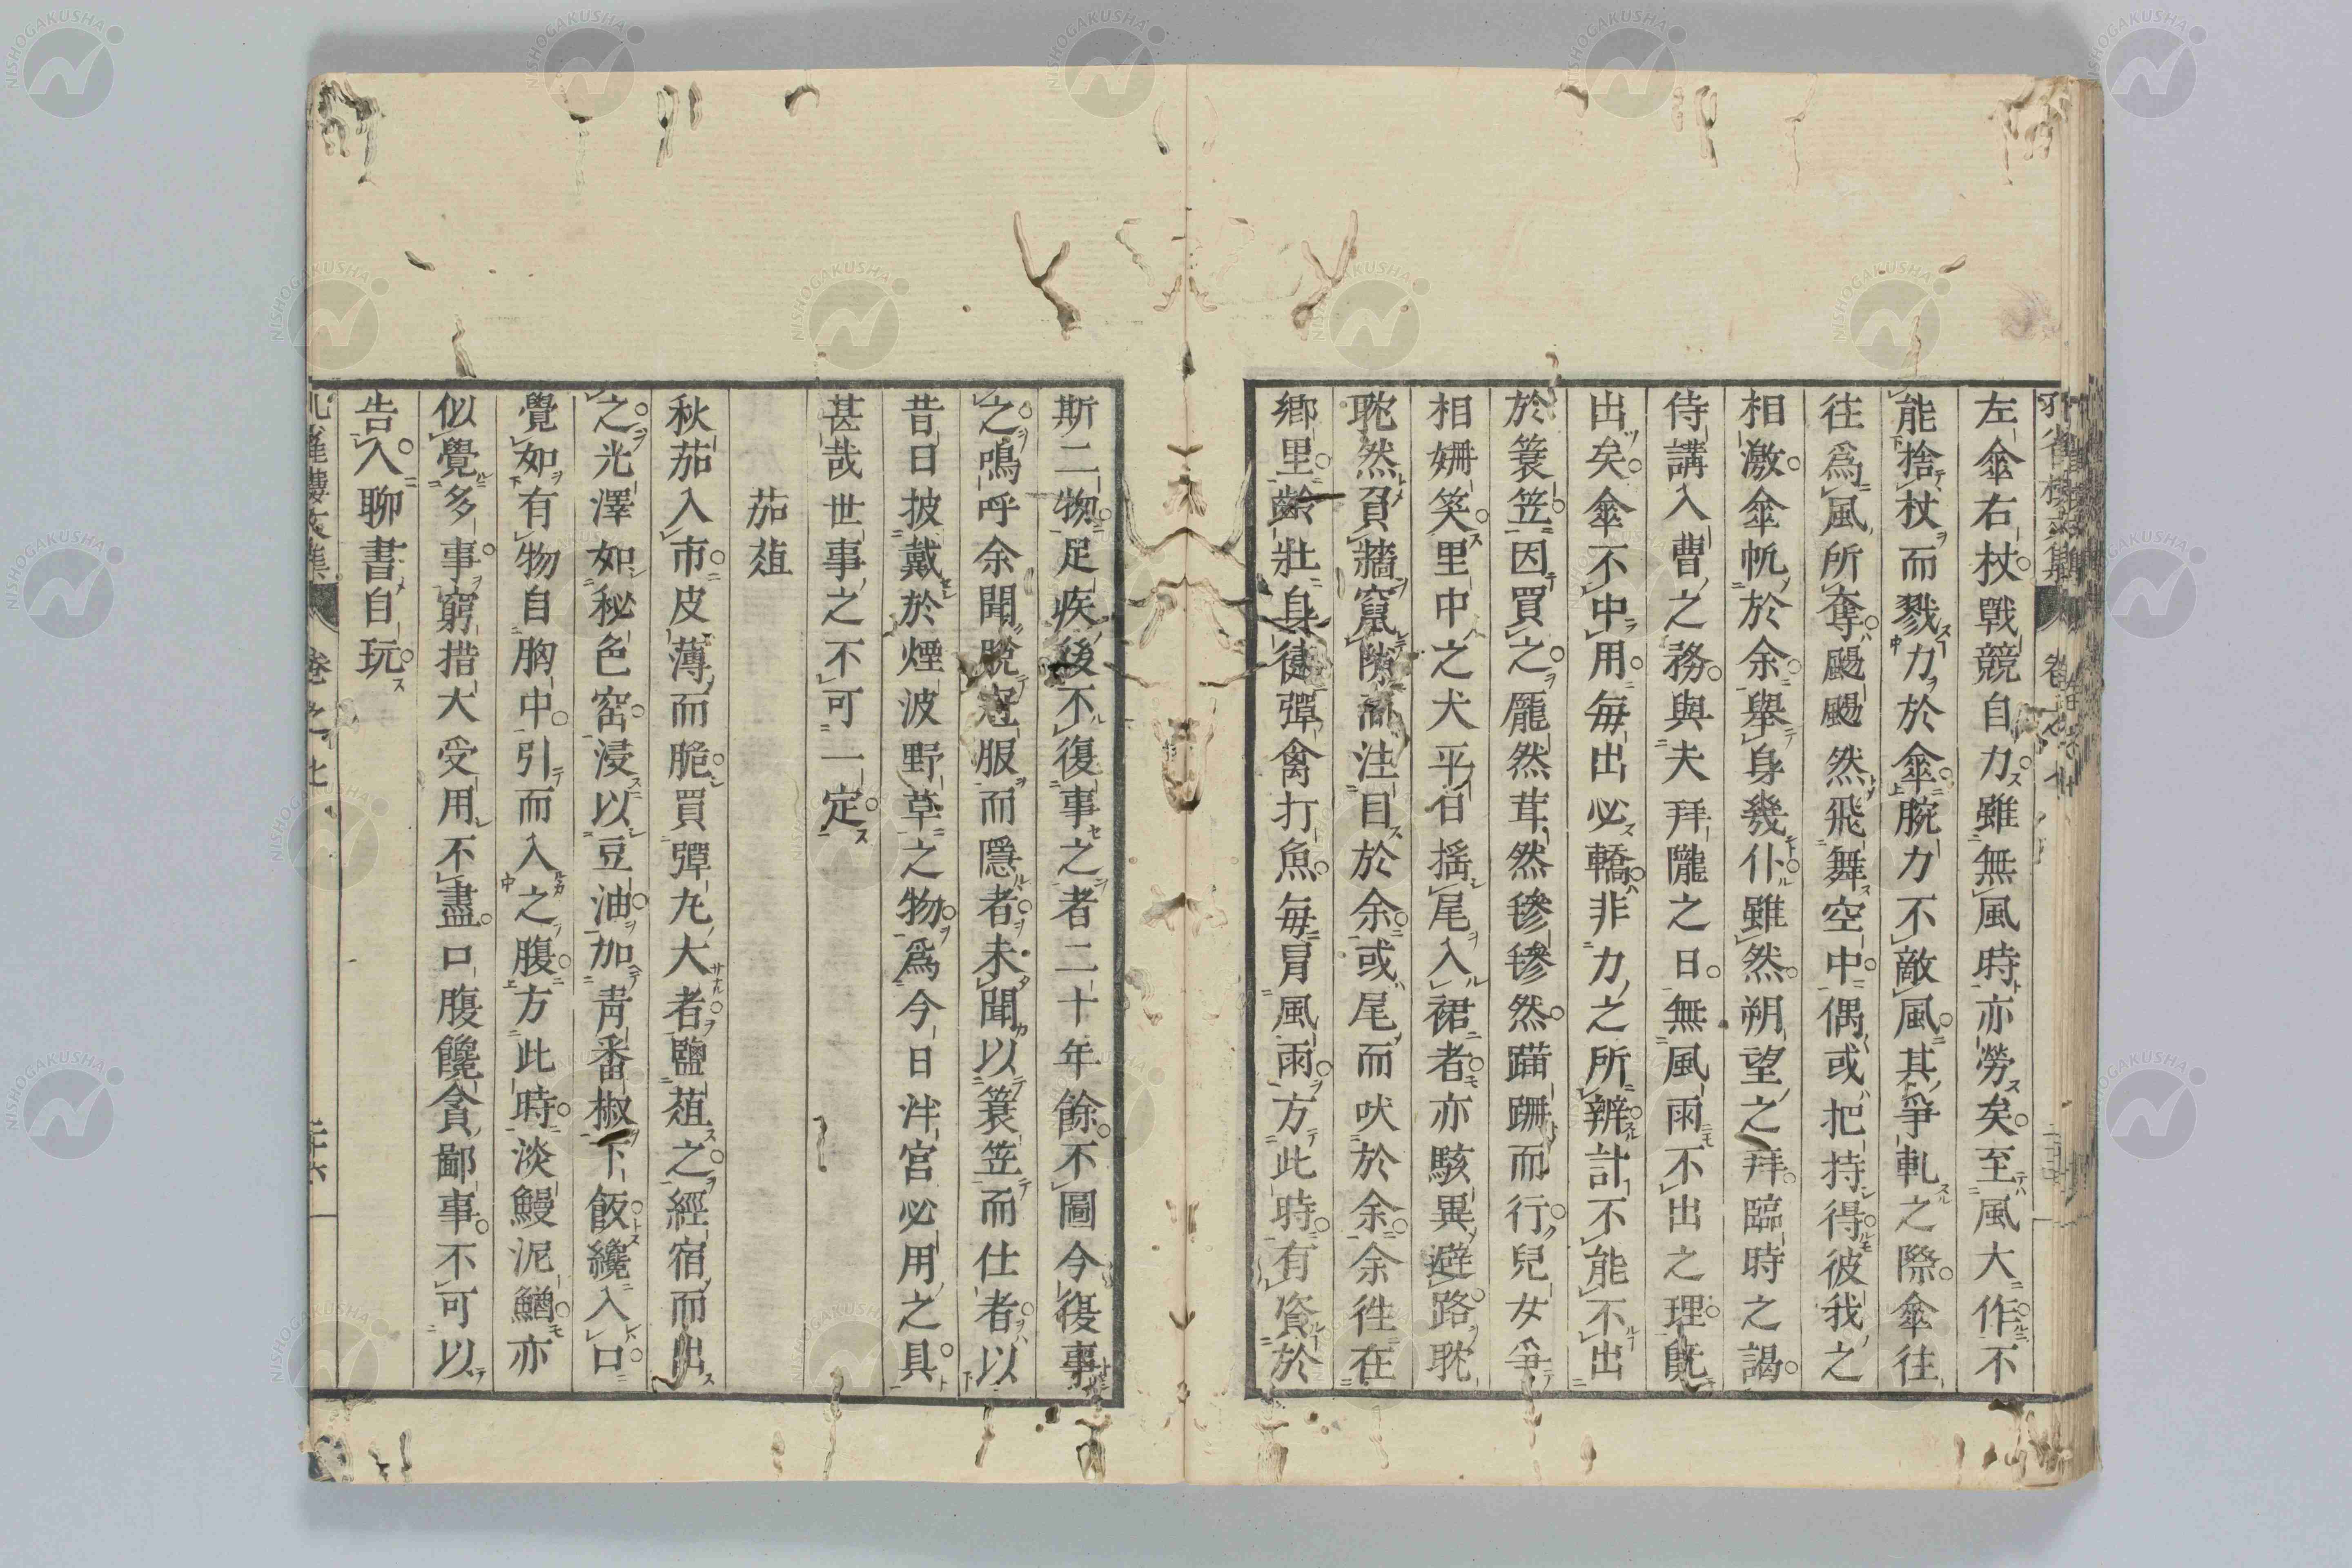 左傘右杖戰競自力雖無風時亦勞矣至風大作不
能捨杖而戮力於傘腕力不敵風其爭軋之際傘往
往爲風所奪颺颺然飛舞空中偶或把持得彼我之
相激傘帆於余擧身幾仆雖然朔望之拜臨時之謁
侍講入曹之務與夫拜隴之日無風雨不出之理旣
出矣傘不中用每出必轎非力之所辨計不能不出
於簑笠因買之厖然茸然毿毿然蹣跚而行兒女爭
相姍笑里中之犬平日搖尾入裙者亦駭異避路眈
眈然負牆竄隙注目於余或尾而吠於余余徃在
鄉里齡壯身健彈禽打魚每冒風雨方此時有資於
斯二物足疾後不復事之者二十年餘不圖今復事
之鳴呼余聞脫冠服而隱者未聞以簑笠而仕者以
昔日披戴於煙波野草之物爲今日泮宮必用之具
甚哉世事之不可一定
茄葅
秋茄入市皮薄而脆買彈丸大者鹽葅之經宿而出
之光澤如秘色窑浸以豆油加靑番椒下飯纔入口
覺如有物自胸中引而入之腹方此時淡鰻泥鰌亦
似覺多事窮措大受用不盡口腹饞貪鄙事不可以
告人聊書自玩
卷之七